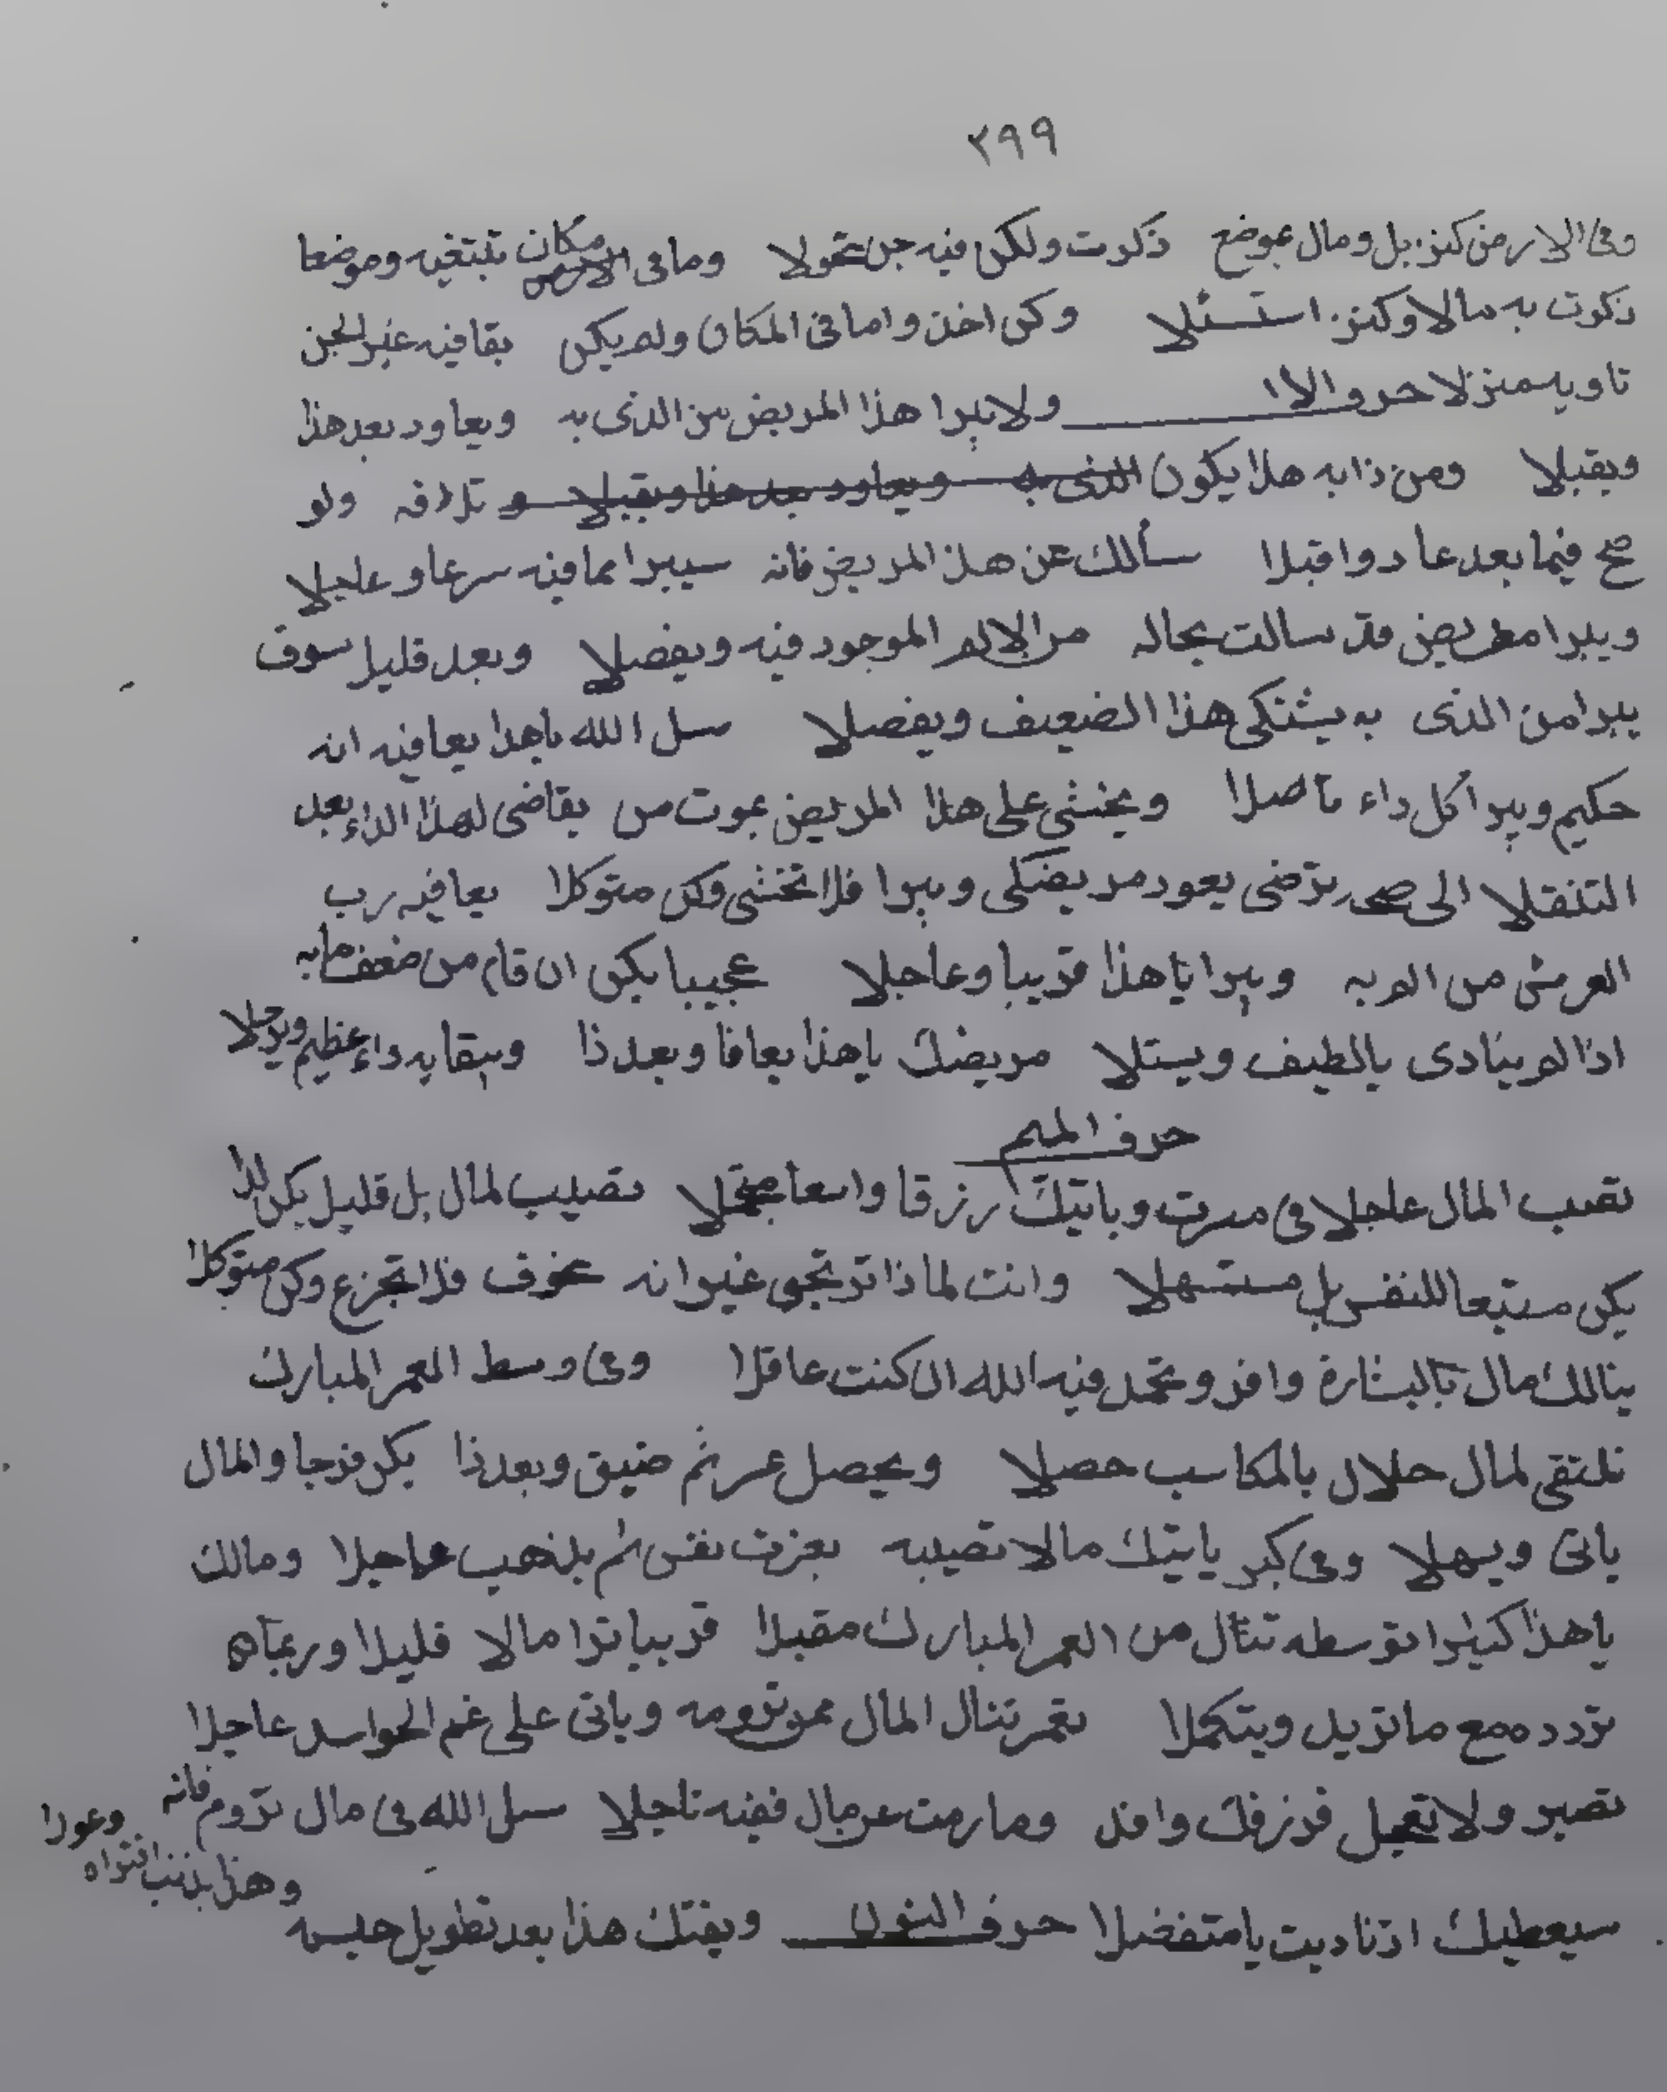 ٢٩٩
وفى الارمن كنز بل ومال بموضع ذكرت ولكن فيه جن تحولا وما فى الارض مكان تبتغيه وموضعا
ذكرت به مالا وكنز استئلا وكن اخذ واما فى المكان ولم يكن بقا فيه غير الجن
تاويه منزلا حرو الا ولا يبرا هذا المريض من الذى به ويعاود بعد هذا
ويقبلا ومن ذا به هلا يكون الذى به ويعاود بعد هذا ويقبلا و تلافه ولو
صح فيما بعد عاد واقبلا سألك عن هذ المريض فانه سيبرا مما فيه سرعا وعاجلا
ويبرا مريض قد سالت بحاله من الالم الموجود فيه ويفصلا وبعد قليل سوف
يبرا من الذى به يشتكى هذا الضعيف ويفصلا سل الله ياهذا يعافيه انه
حكيم ويبرا كل داء تاصلا ويخشى على هذا المريض بموت من يقاضى لهذا الداء بعد
التنقلا الى ترضى يعود مريضكى ويبرا فلا تخشى وكن متوكلا يعافيه رب
العرش من الم به ويبرا يا هذا قريبا وعاجلا عجيبا يكن ان قام من ضعف ما به
اذا لم ينادى يالطيف ويستلا مريضك ياهذا يعافا وبعد ذا ويبقا به داء عظيم ويرحلا
حرف الميم
تصب المال عاجلا فى مدت وياتيك رزقا واسعا تصيب لمال بل قليل يكن لذا
يكن متبعا للنفس بل مستهلا وانت لماذا ترتجى غير انه مخوف فلا تجزع وكن متوكلا
ينالك مال بالبشارة وافر وتحمد فيه الله ان كنت عاقلا وفى وسط العمر المبارك
تلتقى لمال حلال بالمكاسب حصلا ويحصل عسر ثم ضيق وبعد ذا يكن فرجا والمال
ياتى ويهلا وفى كبر ياتيك مالا تصيبه بعزت نفس ثم يذهب عاجلا ومالك
ياهذا كثيرا توسطه تنال من العمر المبارك مقبلا قريبا ترا مالا قليلا وربما
تردده مع ما تريد ويتكملا نعم تنال المال ممن ترومه وياتى على غم الحواسد عاجلا
تصبر ولا تعجل فرزقك وافد وما رمت من مال ففيه تاجلا سل الله فى مال تروم فانه
سيعطيك اذ ناديت يا متفضلا حرف النون ويفتك هذا بعد تطويل حبسه
وهذا بذنب افتراه وعولا